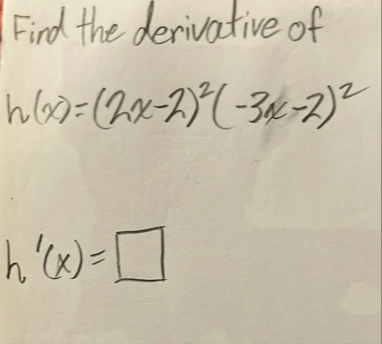 Find the derivative of
h(x)=(2x-2)²(-3x-2)²
h'(x)=☐